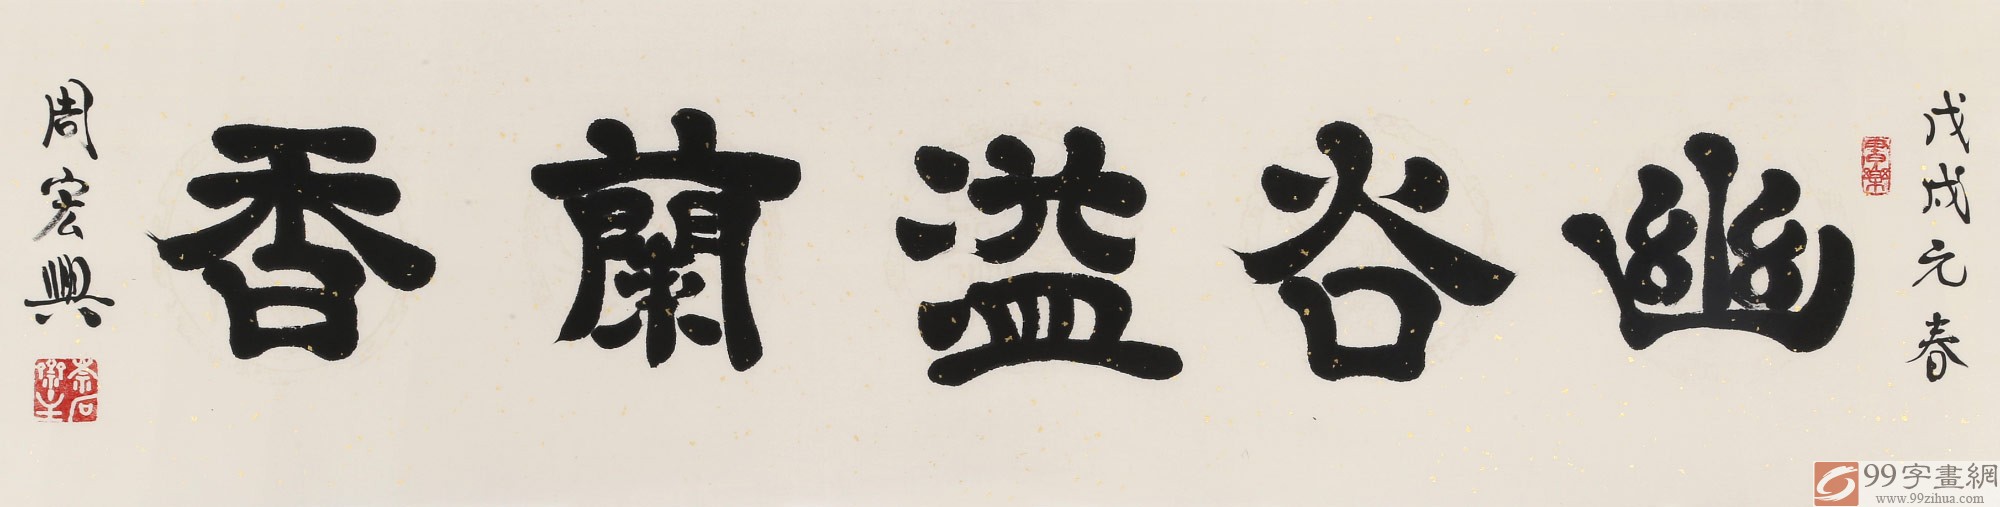 戊戌元春
幽谷溢蘭香
周宏興
99字畫網
www.99zihua.com